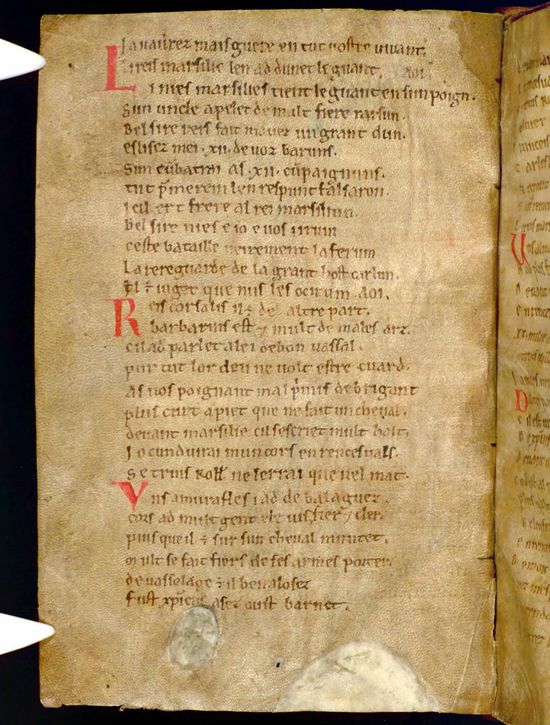 Ja nauūrez mais guere en tut uostre uiuant.
Li reis marsilie len ad dunet le guant. AOI
Li nies marsilies tient le guant en sun poign.
Sun uncle apelet de mult fiere raisun.
Bel sire reis fait mauez un grant dun.
Eslisez mei .xii. de uoz baruns.
Sim cūbatrai al .xii. cūpaignuns.
Tut p̃merein len respunt falsaron.
Icil ert frere al rei marsiliun.
Bel sire nies e io e uos irum
Ceste bataille ueirement la ferum
La rereguarde de la grant host carlun.
Il ē iuget que nus les ocirum. AOI.
Reis corsalis il ē de laltre part.
Barbarins est ⁊ mult de males arz.
Cil ad parlet a lei de bon uassal.
Pur tut lor deu ne uolt estre cuard.
As uos poignant malp̃mis de brigant
Plus curt a piet que ne fait un cheual.
Deuant marsilie cil sescriet mult halt.
Jo cunduirai mun cors en rencesuals.
Se truis Roll̃ ne lerrai que nel mat.
Vns amurafles i ad de balaguez.
Cors ad mult gent ⁊ le uis fier ⁊ cler.
Puis que il ē sur sun cheual muntet.
Mult se fait fiers de ses armes porter.
De uasselage ē il ben alosez
Fust xp̃iens asez oust barnet.